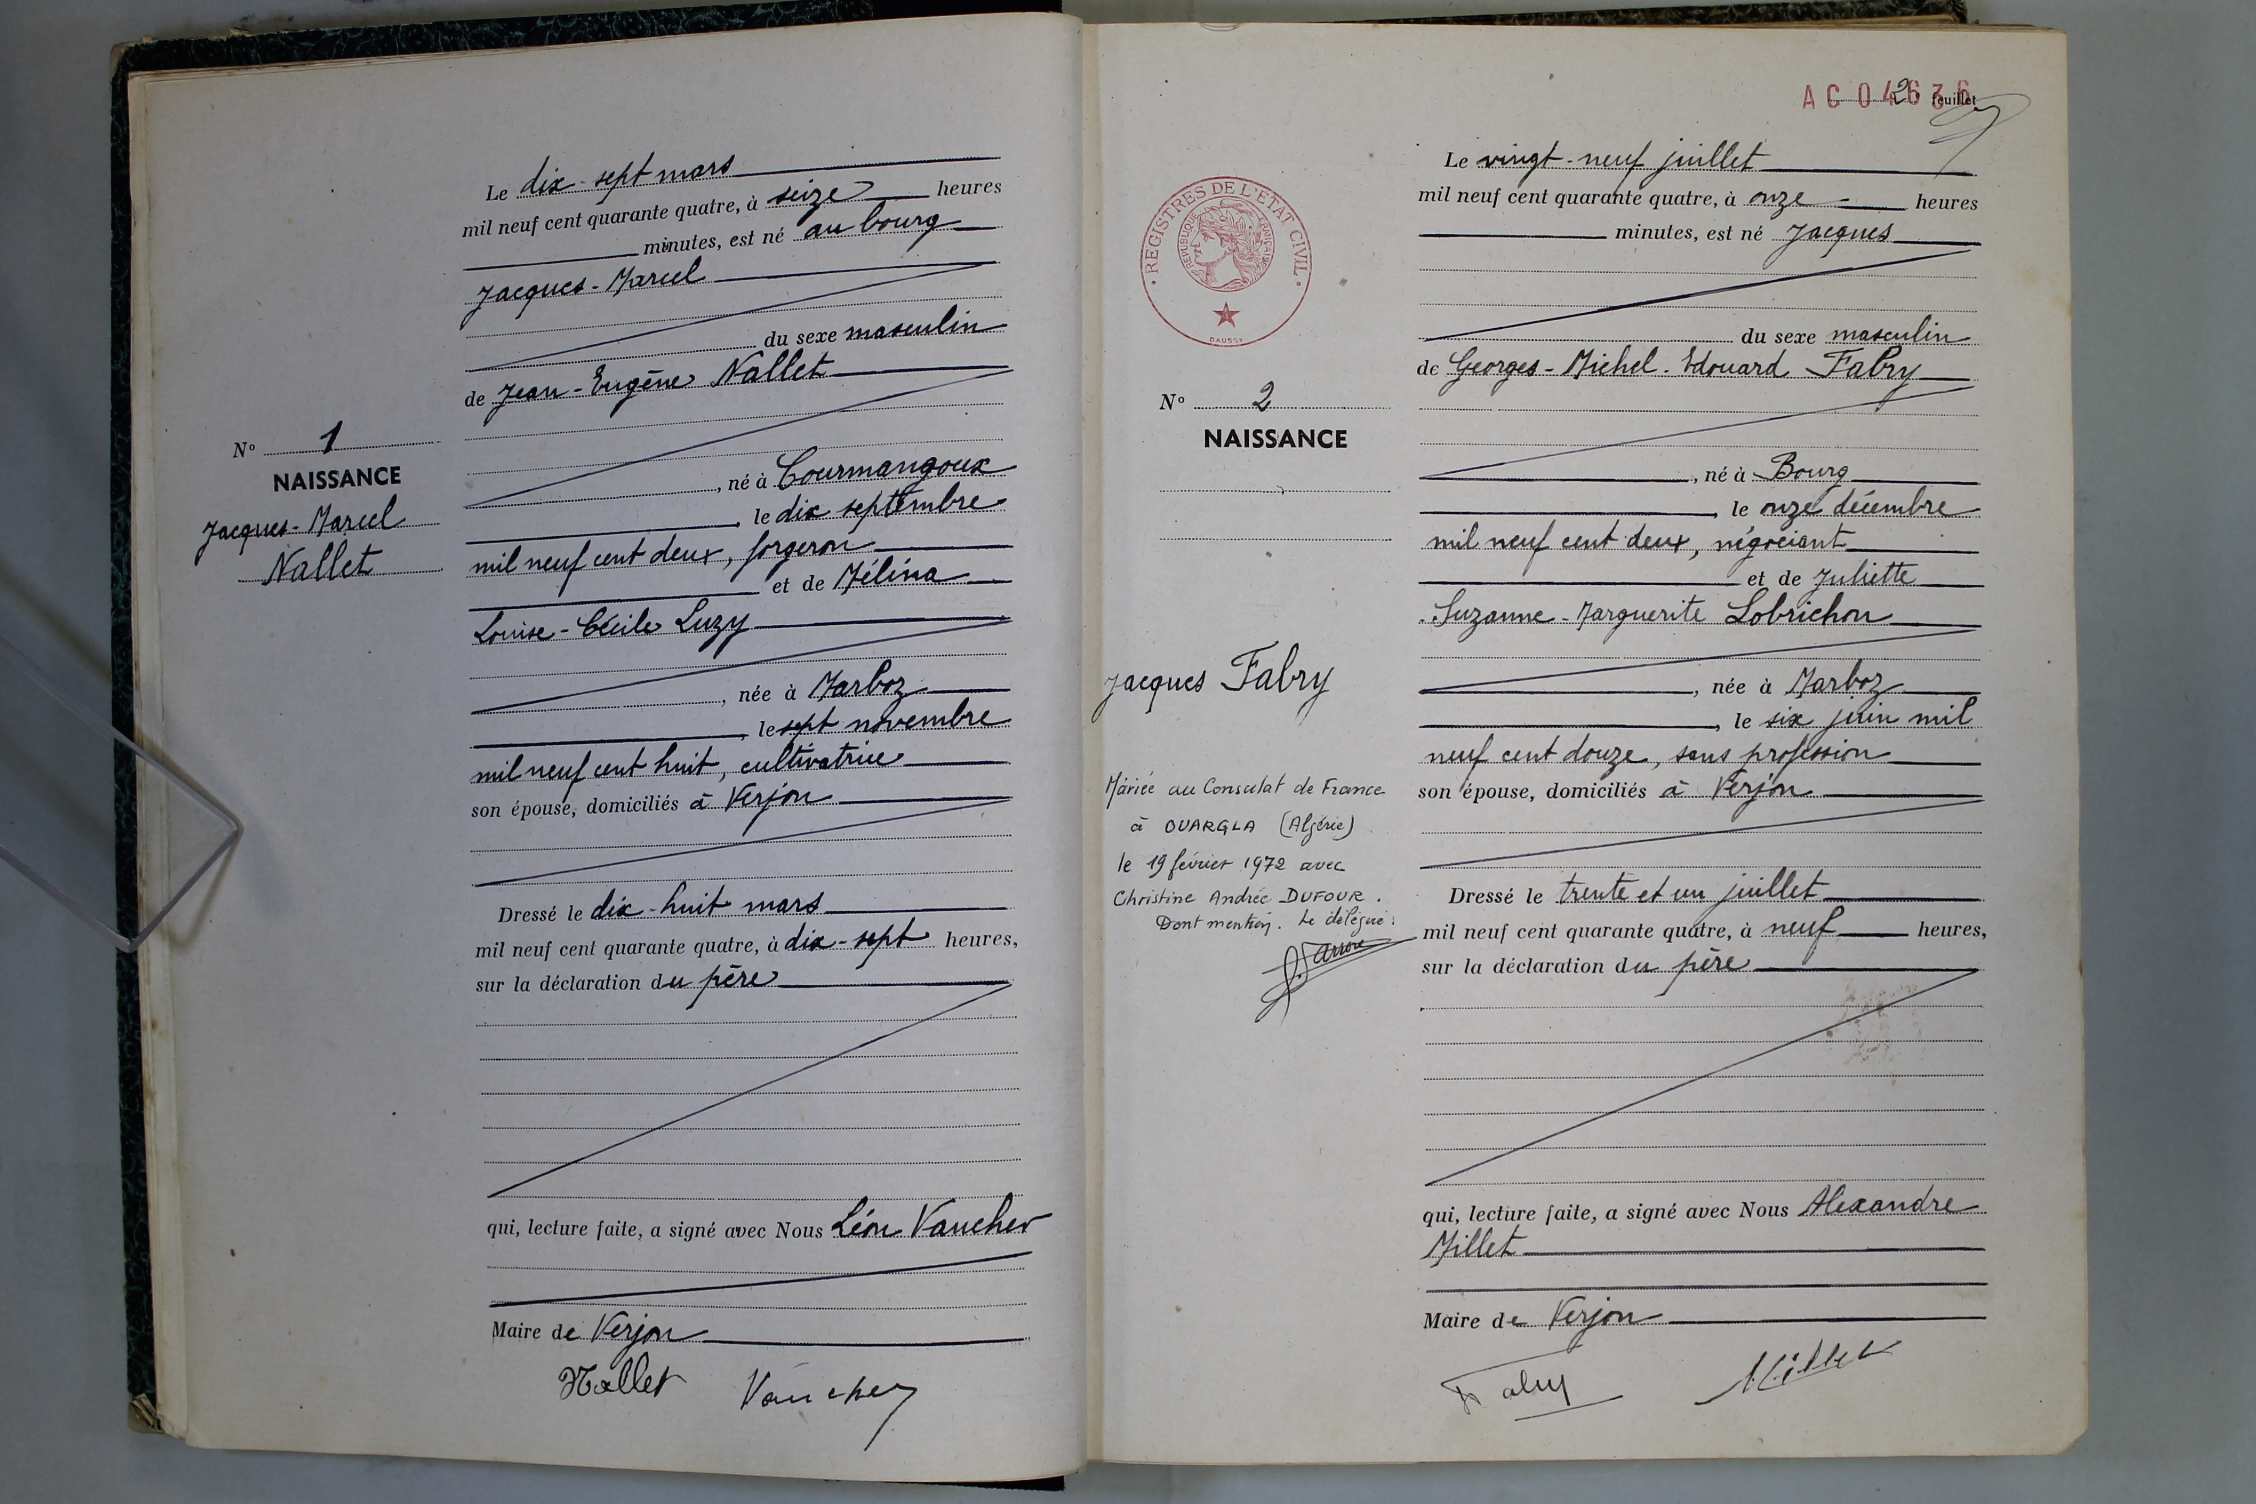 Le dix-sept mars
mil neuf cent quarante quatre, à seize heures
minutes, est né au bourg
Jacques-Marcel
du sexe masculin
de Jean-Eugène Nallet
N° 1
NAISSANCE
Jacques-Marcel
Nallet
, né à Courmangoux
, le dix septembre
mil neuf cent deux, forgeron
et de Mélina
Louise-Cécile Luzy
, née à Marboz
, le sept novembre
mil neuf cent huit, cultivatrice
son épouse, domiciliés à Verjon
Dressé le dix-huit mars
mil neuf cent quarante quatre, à dix-sept heures,
sur la déclaration du père
qui, lecture faite, a signé avec Nous Léon Vaucher
Maire de Verjon
Nallet Vaucher
AC 04636
2 feuillet
REGISTRES DE L'ETAT CIVIL
REPUBLIQUE FRANÇAISE
DAUSSY
N° 2
NAISSANCE
Jacques Fabry
Mariée au Consulat de France
à OUARGLA (Algérie)
le 19 février 1972 avec
Christine Andrée DUFOUR.
Dont mention. Le délégué:
Le vingt-neuf juillet
mil neuf cent quarante quatre, à onze heures
minutes, est né Jacques
du sexe masculin
de Georges-Michel-Edouard Fabry
, né à Bourg
, le onze décembre
mil neuf cent deux, négociant
et de Juliette
Suzanne-Marguerite Lobrichon
, née à Marboz
, le six juin mil
neuf cent douze, sans profession
son épouse, domiciliés à Verjon
Dressé le trente et un juillet
mil neuf cent quarante quatre, à neuf heures,
sur la déclaration du père
qui, lecture faite, a signé avec Nous Alexandre
Millet
Maire de Verjon
Fabry Millet